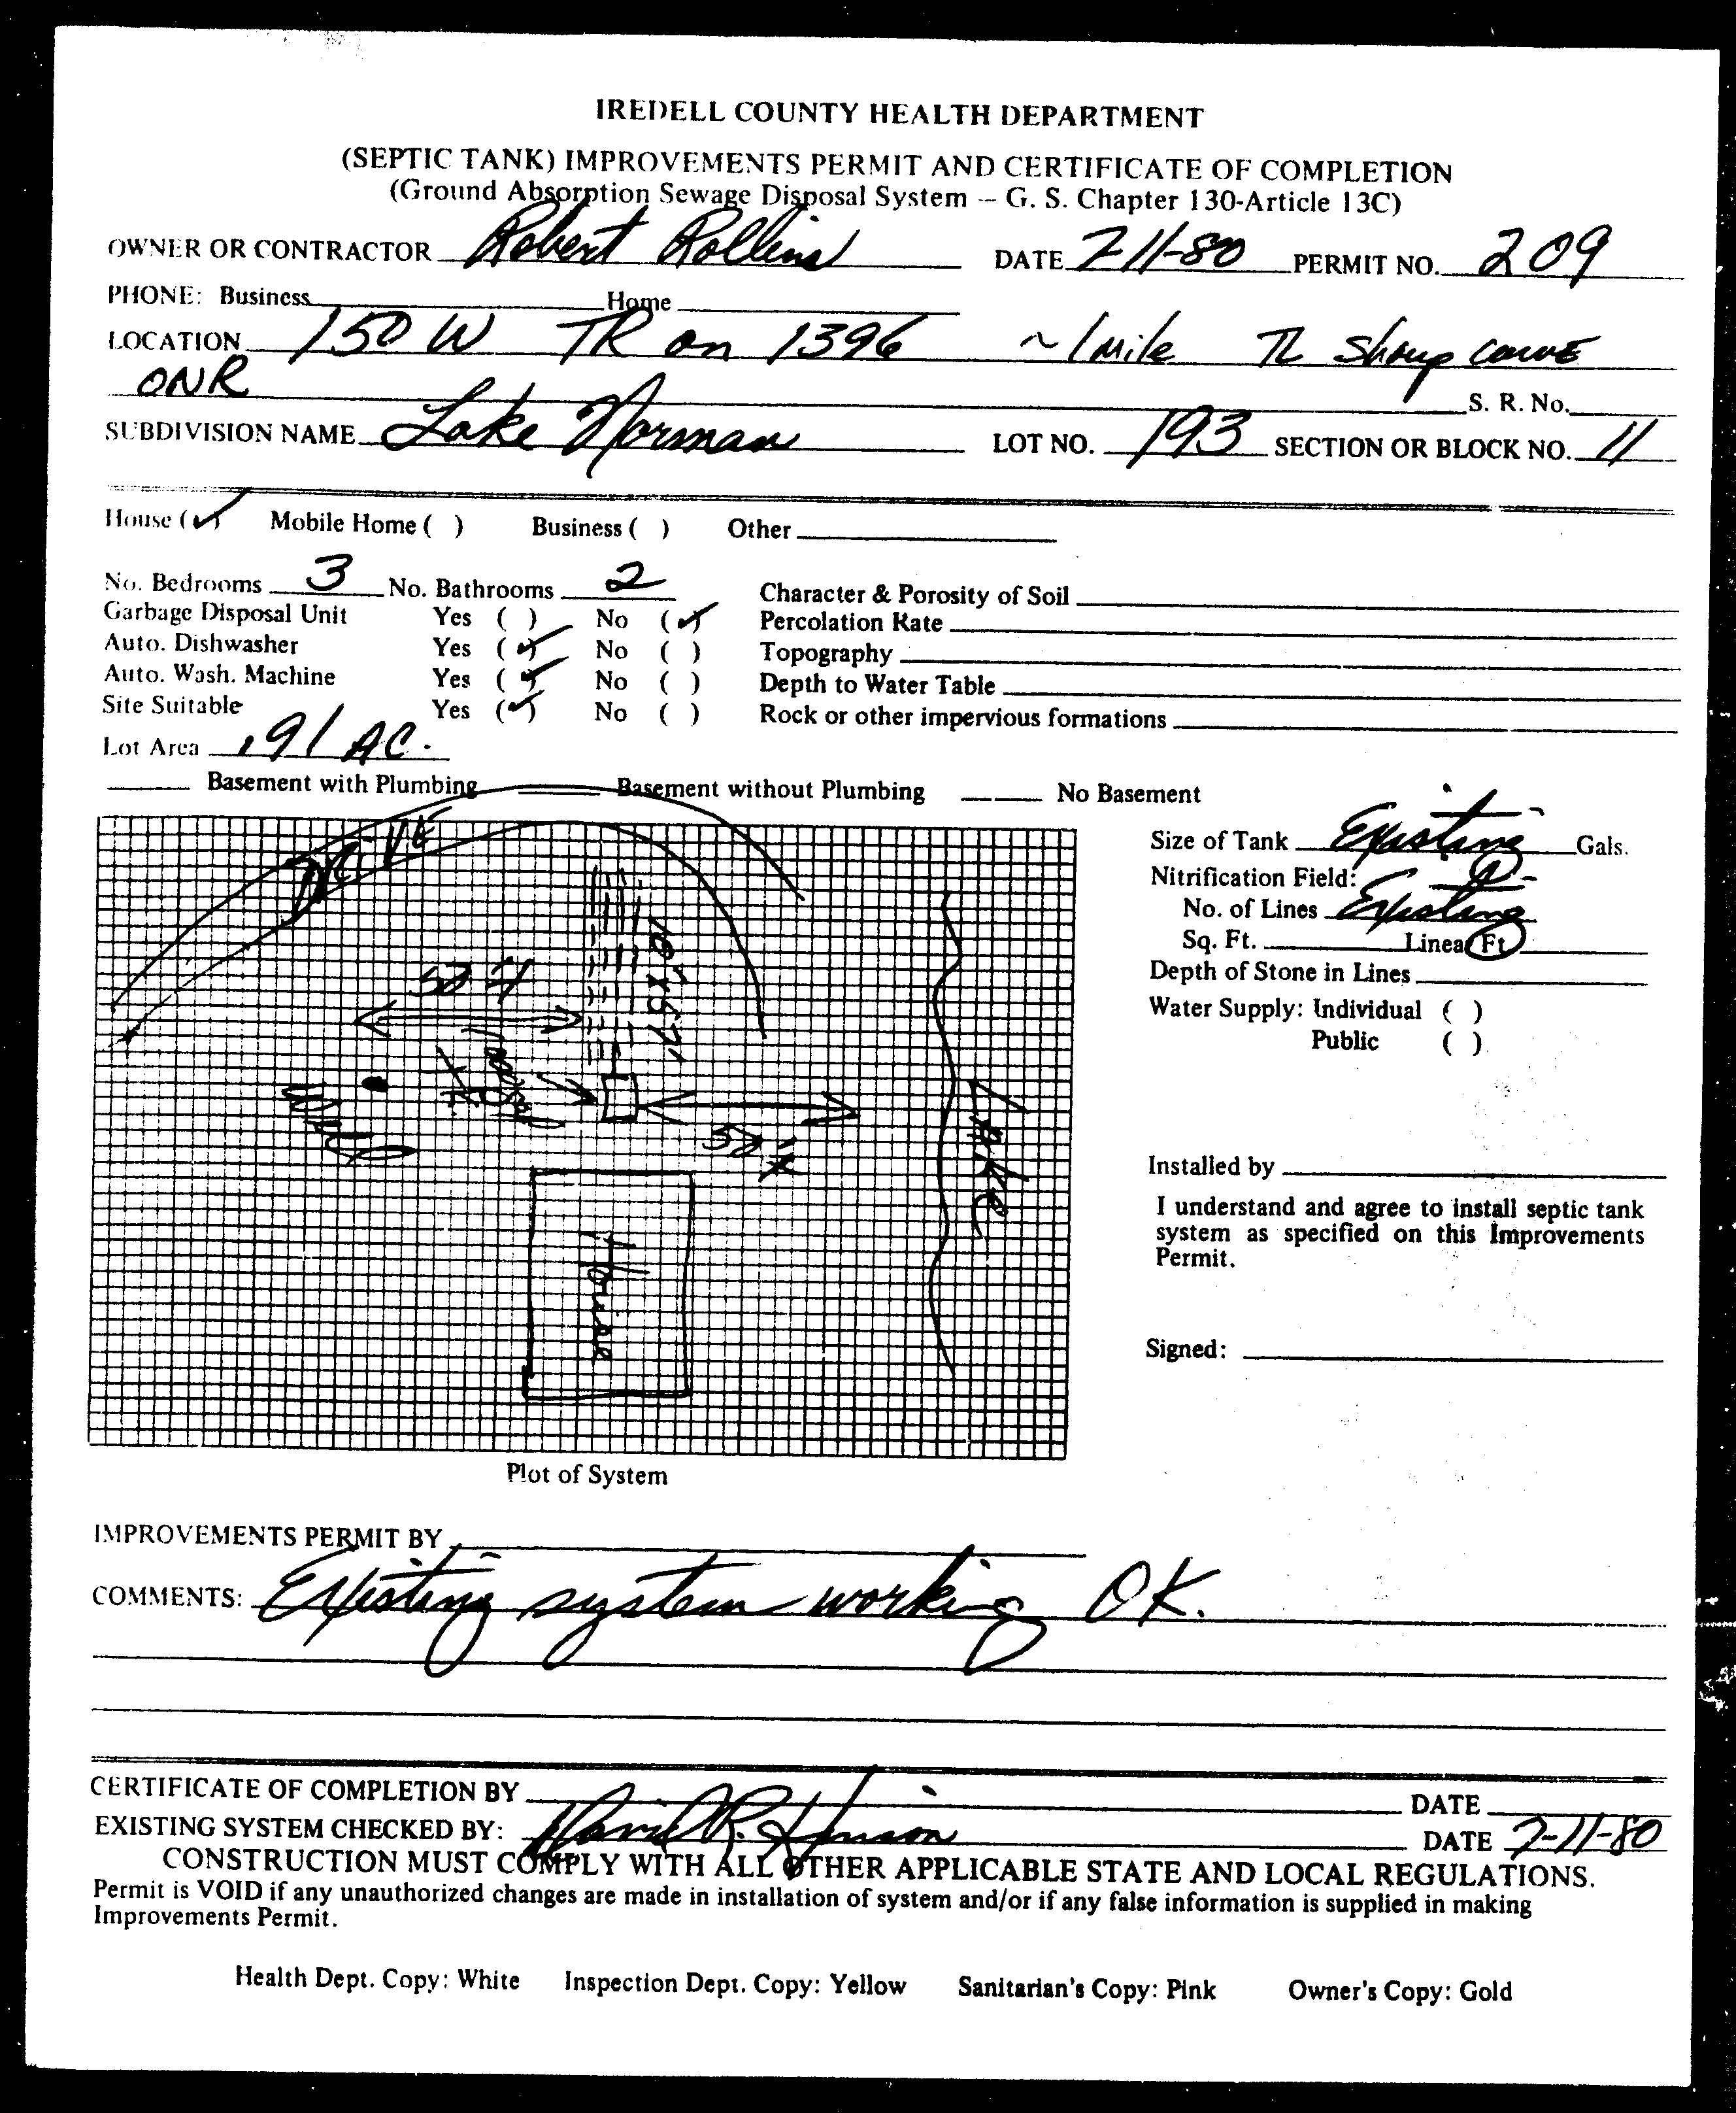 IREDELL COUNTY HEALTH DEPARTMENT
(SEPTIC TANK) IMPROVEMENTS PERMIT AND CERTIFICATE OF COMPLETION
(Ground Absorption Sewage Disposal System – G. S. Chapter 130-Article 13C)
OWNER OR CONTRACTOR Robert Rollins DATE 7-11-80 PERMIT NO. 209
PHONE: Business Home
LOCATION 150 W TR on 1396 ~ 1 mile TL sharp curve
ON R S. R. No.
SUBDIVISION NAME Lake Norman LOT NO. 193 SECTION OR BLOCK NO. 11
House (✓) Mobile Home ( ) Business ( ) Other
No. Bedrooms 3 No. Bathrooms 2 Character & Porosity of Soil
Garbage Disposal Unit Yes ( ) No (✓) Percolation Rate
Auto. Dishwasher Yes (✓) No ( ) Topography
Auto. Wash. Machine Yes (✓) No ( ) Depth to Water Table
Site Suitable Yes (✓) No ( ) Rock or other impervious formations
Lot Area .91 AC.
Basement with Plumbing Basement without Plumbing No Basement
Size of Tank Existing Gals.
Nitrification Field:
No. of Lines Existing
Sq. Ft. Linear Ft
Depth of Stone in Lines
Water Supply: Individual ( )
Public ( )
Drive
50 ft
Lake
House
Installed by
I understand and agree to install septic tank
system as specified on this Improvements
Permit.
Signed:
Plot of System
IMPROVEMENTS PERMIT BY
COMMENTS: Existing system working OK.
CERTIFICATE OF COMPLETION BY DATE
EXISTING SYSTEM CHECKED BY: David R. DATE 7-11-80
CONSTRUCTION MUST COMPLY WITH ALL OTHER APPLICABLE STATE AND LOCAL REGULATIONS.
Permit is VOID if any unauthorized changes are made in installation of system and/or if any false information is supplied in making
Improvements Permit.
Health Dept. Copy: White Inspection Dept. Copy: Yellow Sanitarian's Copy: Pink Owner's Copy: Gold